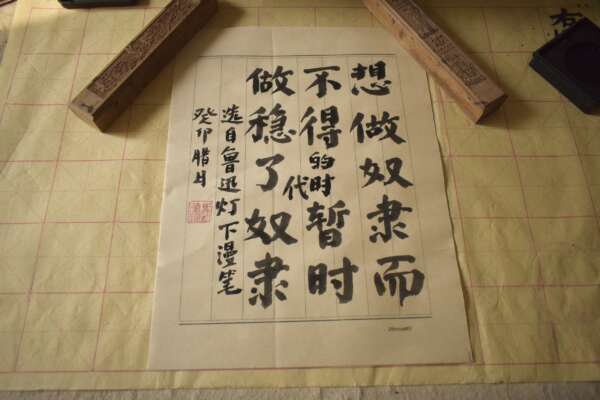 想做奴隶而
不得的时代暂时
做稳了奴隶
选自鲁迅灯下漫笔
癸卯腊月